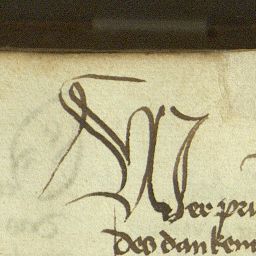 Wer pri
des danken